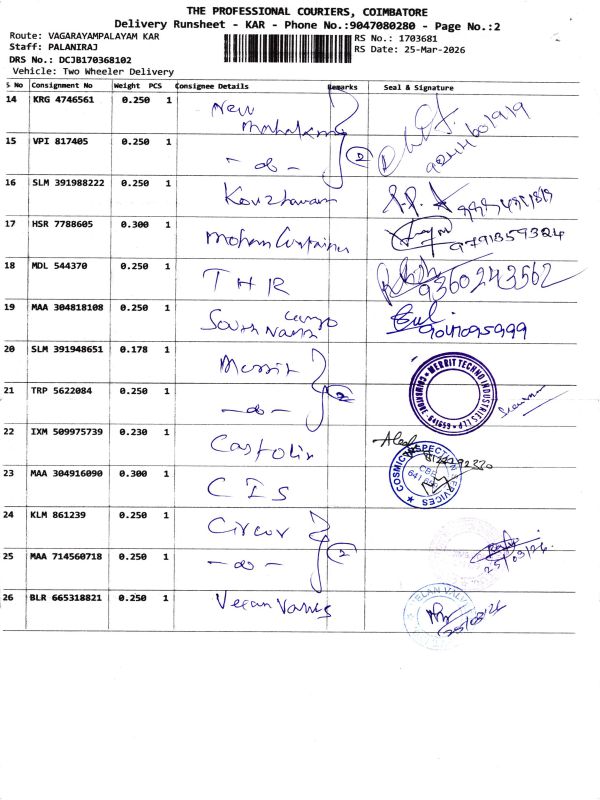 THE PROFESSIONAL COURIERS, COIMBATORE
Delivery Runsheet - KAR - Phone No.:9047080280 - Page No.:2
Route: VAGARAYAMPALAYAM KAR
RS No.: 1703681
Staff: PALANIRAJ
RS Date: 25-Mar-2026
DRS No.: DCJB170368102
Vehicle: Two Wheeler Delivery
S No Consignment No Weight PCS Consignee Details Remarks Seal & Signature
14 KRG 4746561 0.250 1 New
15 VPI 817405 0.250 1 - do - 2
16 SLM 391988222 0.250 1
17 HSR 7788605 0.300 1 Mohan 9791359324
18 MDL 544370 0.250 1 THR 9360243562
19 MAA 304818108 0.250 1 South 9047095999
20 SLM 391948651 0.178 1 Merrit MERRIT TECHNO INDUSTRIES LLP
21 TRP 5622084 0.250 1 - do - 2
22 IXM 509975739 0.230 1
23 MAA 304916090 0.300 1 CIS COSMIC INSPECTION SERVICES
24 KLM 861239 0.250 1 Circor
25 MAA 714560718 0.250 1 - do - 2 25/03/26
26 BLR 665318821 0.250 1